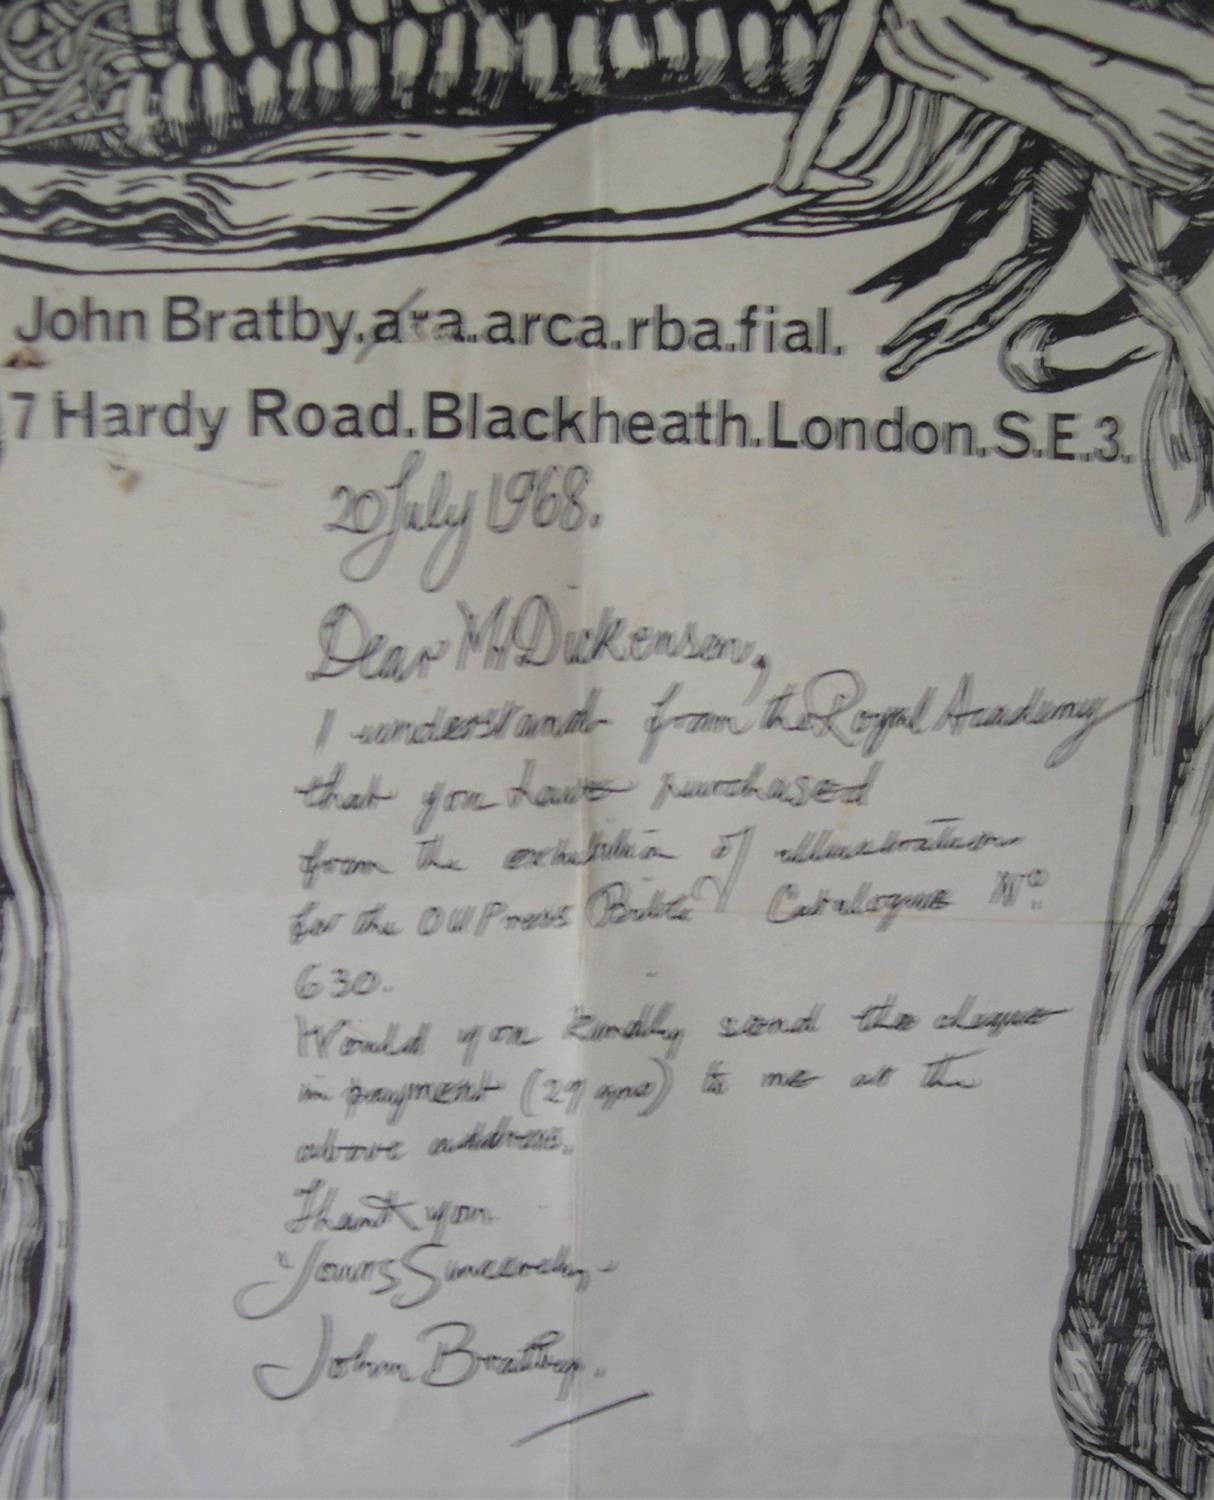 John Bratby.ara.arca.rba.fial.
7 Hardy Road.Blackheath.London.S.E.3.
20 July 1968.
Dear Mr Dickenson,
I understand from the Royal Academy
that you have purchased
from the exhibition of illustrations
for the Oxford Press Bible Catalogue Nº
630.
Would you kindly send the cheque
in payment (29 gns) to me at the
above address.
Thank you.
Yours Sincerely,
John Bratby.